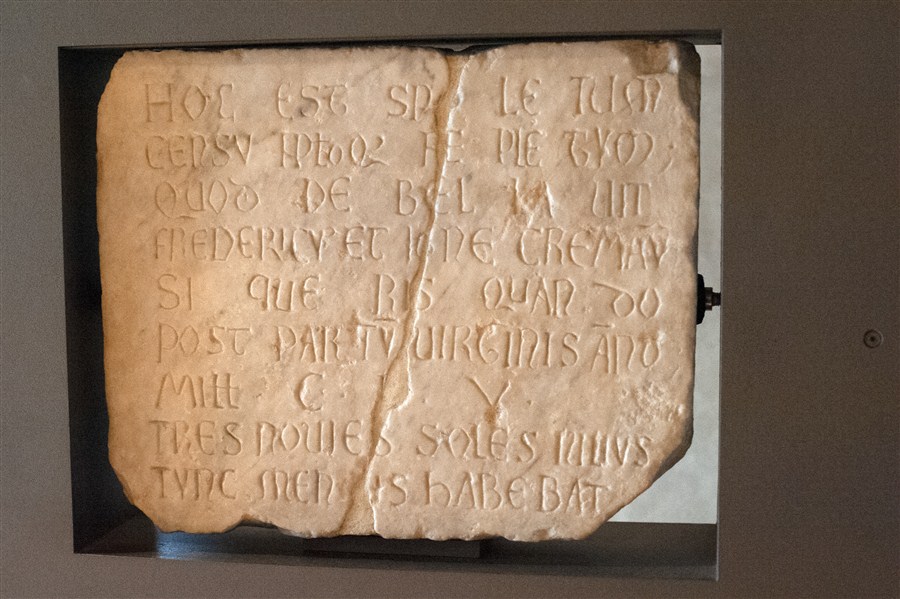 HOC EST SP LE TUM
CENSV RE PLE TVM ;
QUOD DE BEL LA UIT
FREDERICV ET IGNE CREMAV
SI QUE RIS QUAN DO
POST PAR TV UIRGINIS ANO
MILL C L V
TRES NOUIES SOLES IULIUS
TVNC MEN IS HABE BAT